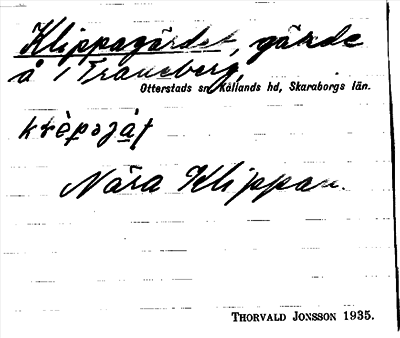 Klippagärdet, gärde
å 1 Traneberg,
Otterstads sn Kållands hd, Skaraborgs län.
Nära Klippan.
THORVALD JONSSON 1935.